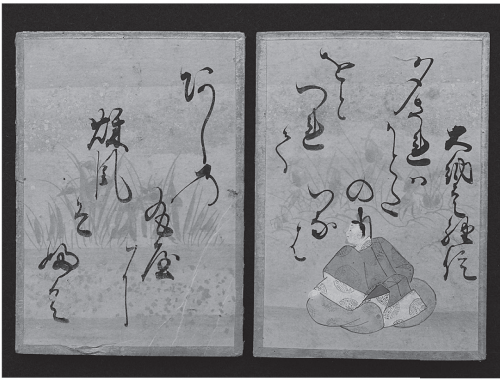 大納言経信
夕されハ
かとた
の
いな
は
をと
つれ
て
あしの
まろ屋
に
秋風
そ
ふく